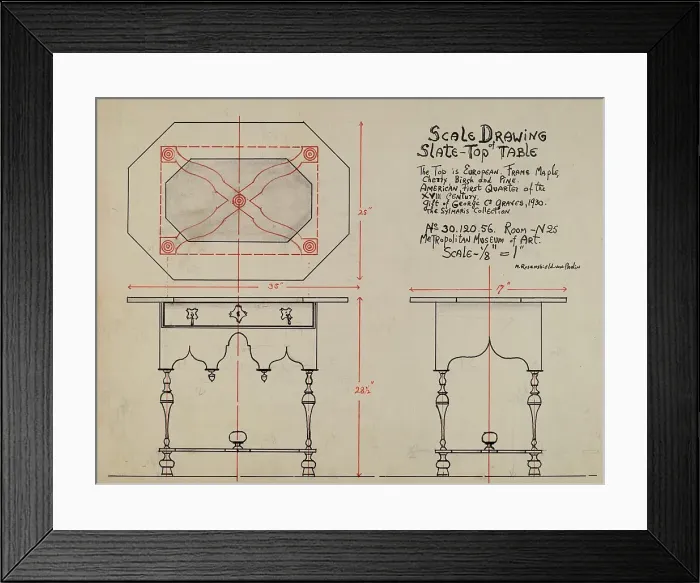 Scale Drawing
of
Slate-Top Table
The Top is European. Frame Maple,
Cherry Birch and Pine.
American, First Quarter of the
XVIII Century.
Gift of George Co Graves, 1930.
The Sylmaris Collection
No 30.120.56. Room -N25
Metropolitan Museum of Art.
Scale-1/8" = 1"
28"
36"
7"
28½"